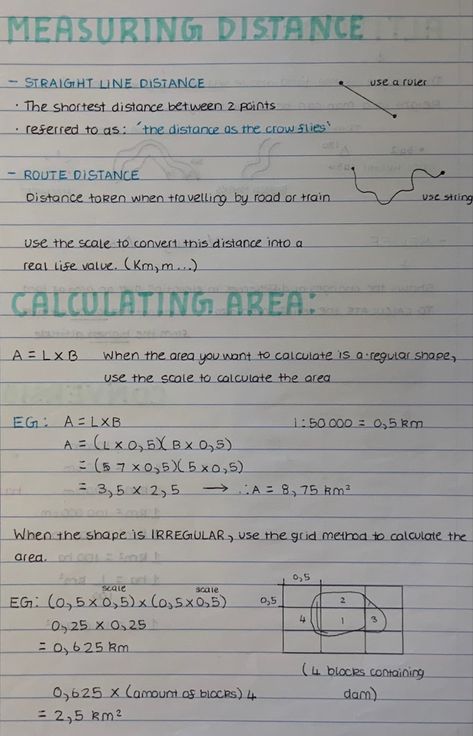 MEASURING DISTANCE
- STRAIGHT LINE DISTANCE
use a ruler
· The shortest distance between 2 points
· referred to as: 'the distance as the crow flies'
- ROUTE DISTANCE
Distance taken when travelling by road or train
use string
Use the scale to convert this distance into a
real life value. (Km, m...)
CALCULATING AREA:
A = L x B When the area you want to calculate is a regular shape,
use the scale to calculate the area
EG: A = L x B 1:50 000 = 0,5 km
A = (L x 0,5)(B x 0,5)
= (7 x 0,5)(5 x 0,5)
= 3,5 x 2,5 → ∴A = 8,75 km²
When the shape is IRREGULAR, use the grid method to calculate the
area.
scale scale
EG: (0,5 x 0,5) x (0,5 x 0,5)
0,25 x 0,25
= 0,625 km
0,5
0,5
2
4 1 3
(4 blocks containing
dam)
0,625 x (amount of blocks) 4
= 2,5 km²